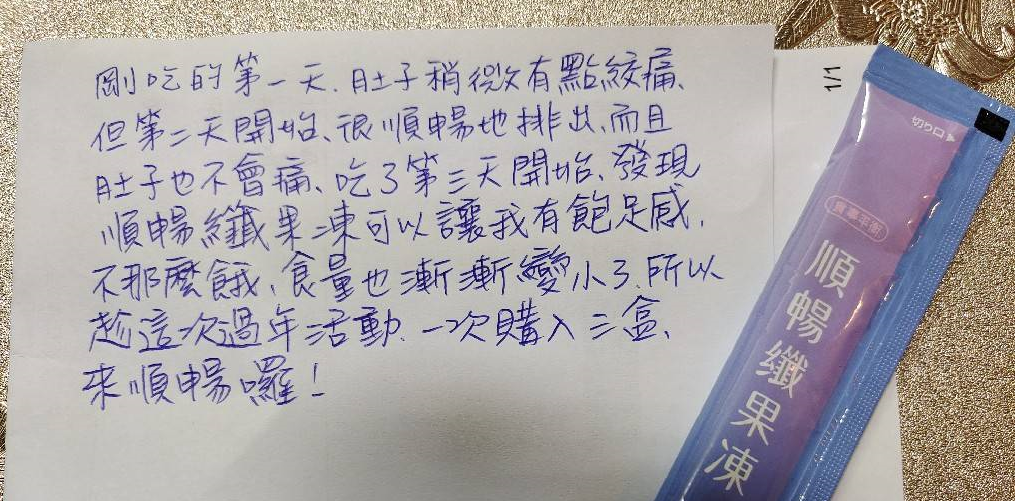 剛吃的第一天、肚子稍微有點絞痛、
但第二天開始、很順暢地排出、而且
肚子也不會痛、吃了第三天開始、發現
順暢纖果凍可以讓我有飽足感,
不那麼餓、食量也漸漸變小了、所以
趁這次過年活動、一次購入三盒、
來順暢囉!
1/1
切り口
窈窕平衡
順暢纖果凍